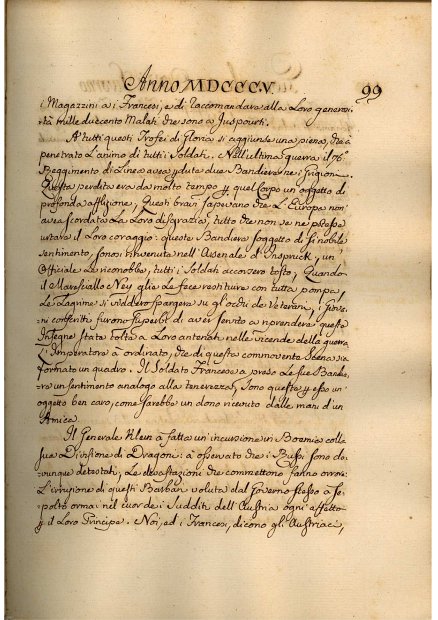 Anno MDCCCV. 99
i Magazzini a i Francesi, e di raccomandare alla Loro generosi
tà mille ducento Malati che sono a
A tutti questi Trofei di Gloria si aggiunse una piena, che à
penetrato L'animo di tutti i Soldati. Nell'ultima guerra il 76.
Reggimento di Linea avea perdute due Bandiere ne i Grigioni.
Questa perdita era da molto tempo per quel Corpo un oggetto di
profonda afflizione; Questi bravi sapevano che L'Europa non
avea scordata La Loro disgrazia, tutto che non se ne potesse
il Loro coraggio: queste Bandiere soggetto di sì nobile
sentimento, sonosi rinvenute nell'Arsenale di Inspruck, un
Officiale Le riconobbe, tutti i Soldati accorsero tosto, Quando
il Maresciallo Ney glie Le fece restituire con tutta pompa,
Le Lagrime si viddero spargere su gl'occhi de Veterani, i Giova-
ni Conscritti furono superbi di aver servito a riprendere queste
Insegne state tolte a Loro antenati nelle vicende della guerra.
L'Imperatore à ordinato, che di questa commovente Scena sia
formato un quadro. Il Soldato Francese à preso Le sue Bandie-
re un sentimento analogo alla tenerezza, sono queste per esso un
oggetto ben caro, come sarebbe un dono ricevuto dalle mani d'un
Amica.
Il Generale Klein à fatta un'incursione in Boemia colla
sua Divisione di Dragoni: à osservato che i Russi sono do-
vunque detestati, Le devastazioni che commettono fanno orrore.
L'irruzione di questi Barbari voluta dal Governo stesso à se-
polto ormai nel cuor de i Sudditi dell'Austria ogni affetto
per il Loro Principe. Noi, ed i Francesi, dicono gl'Austriaci,